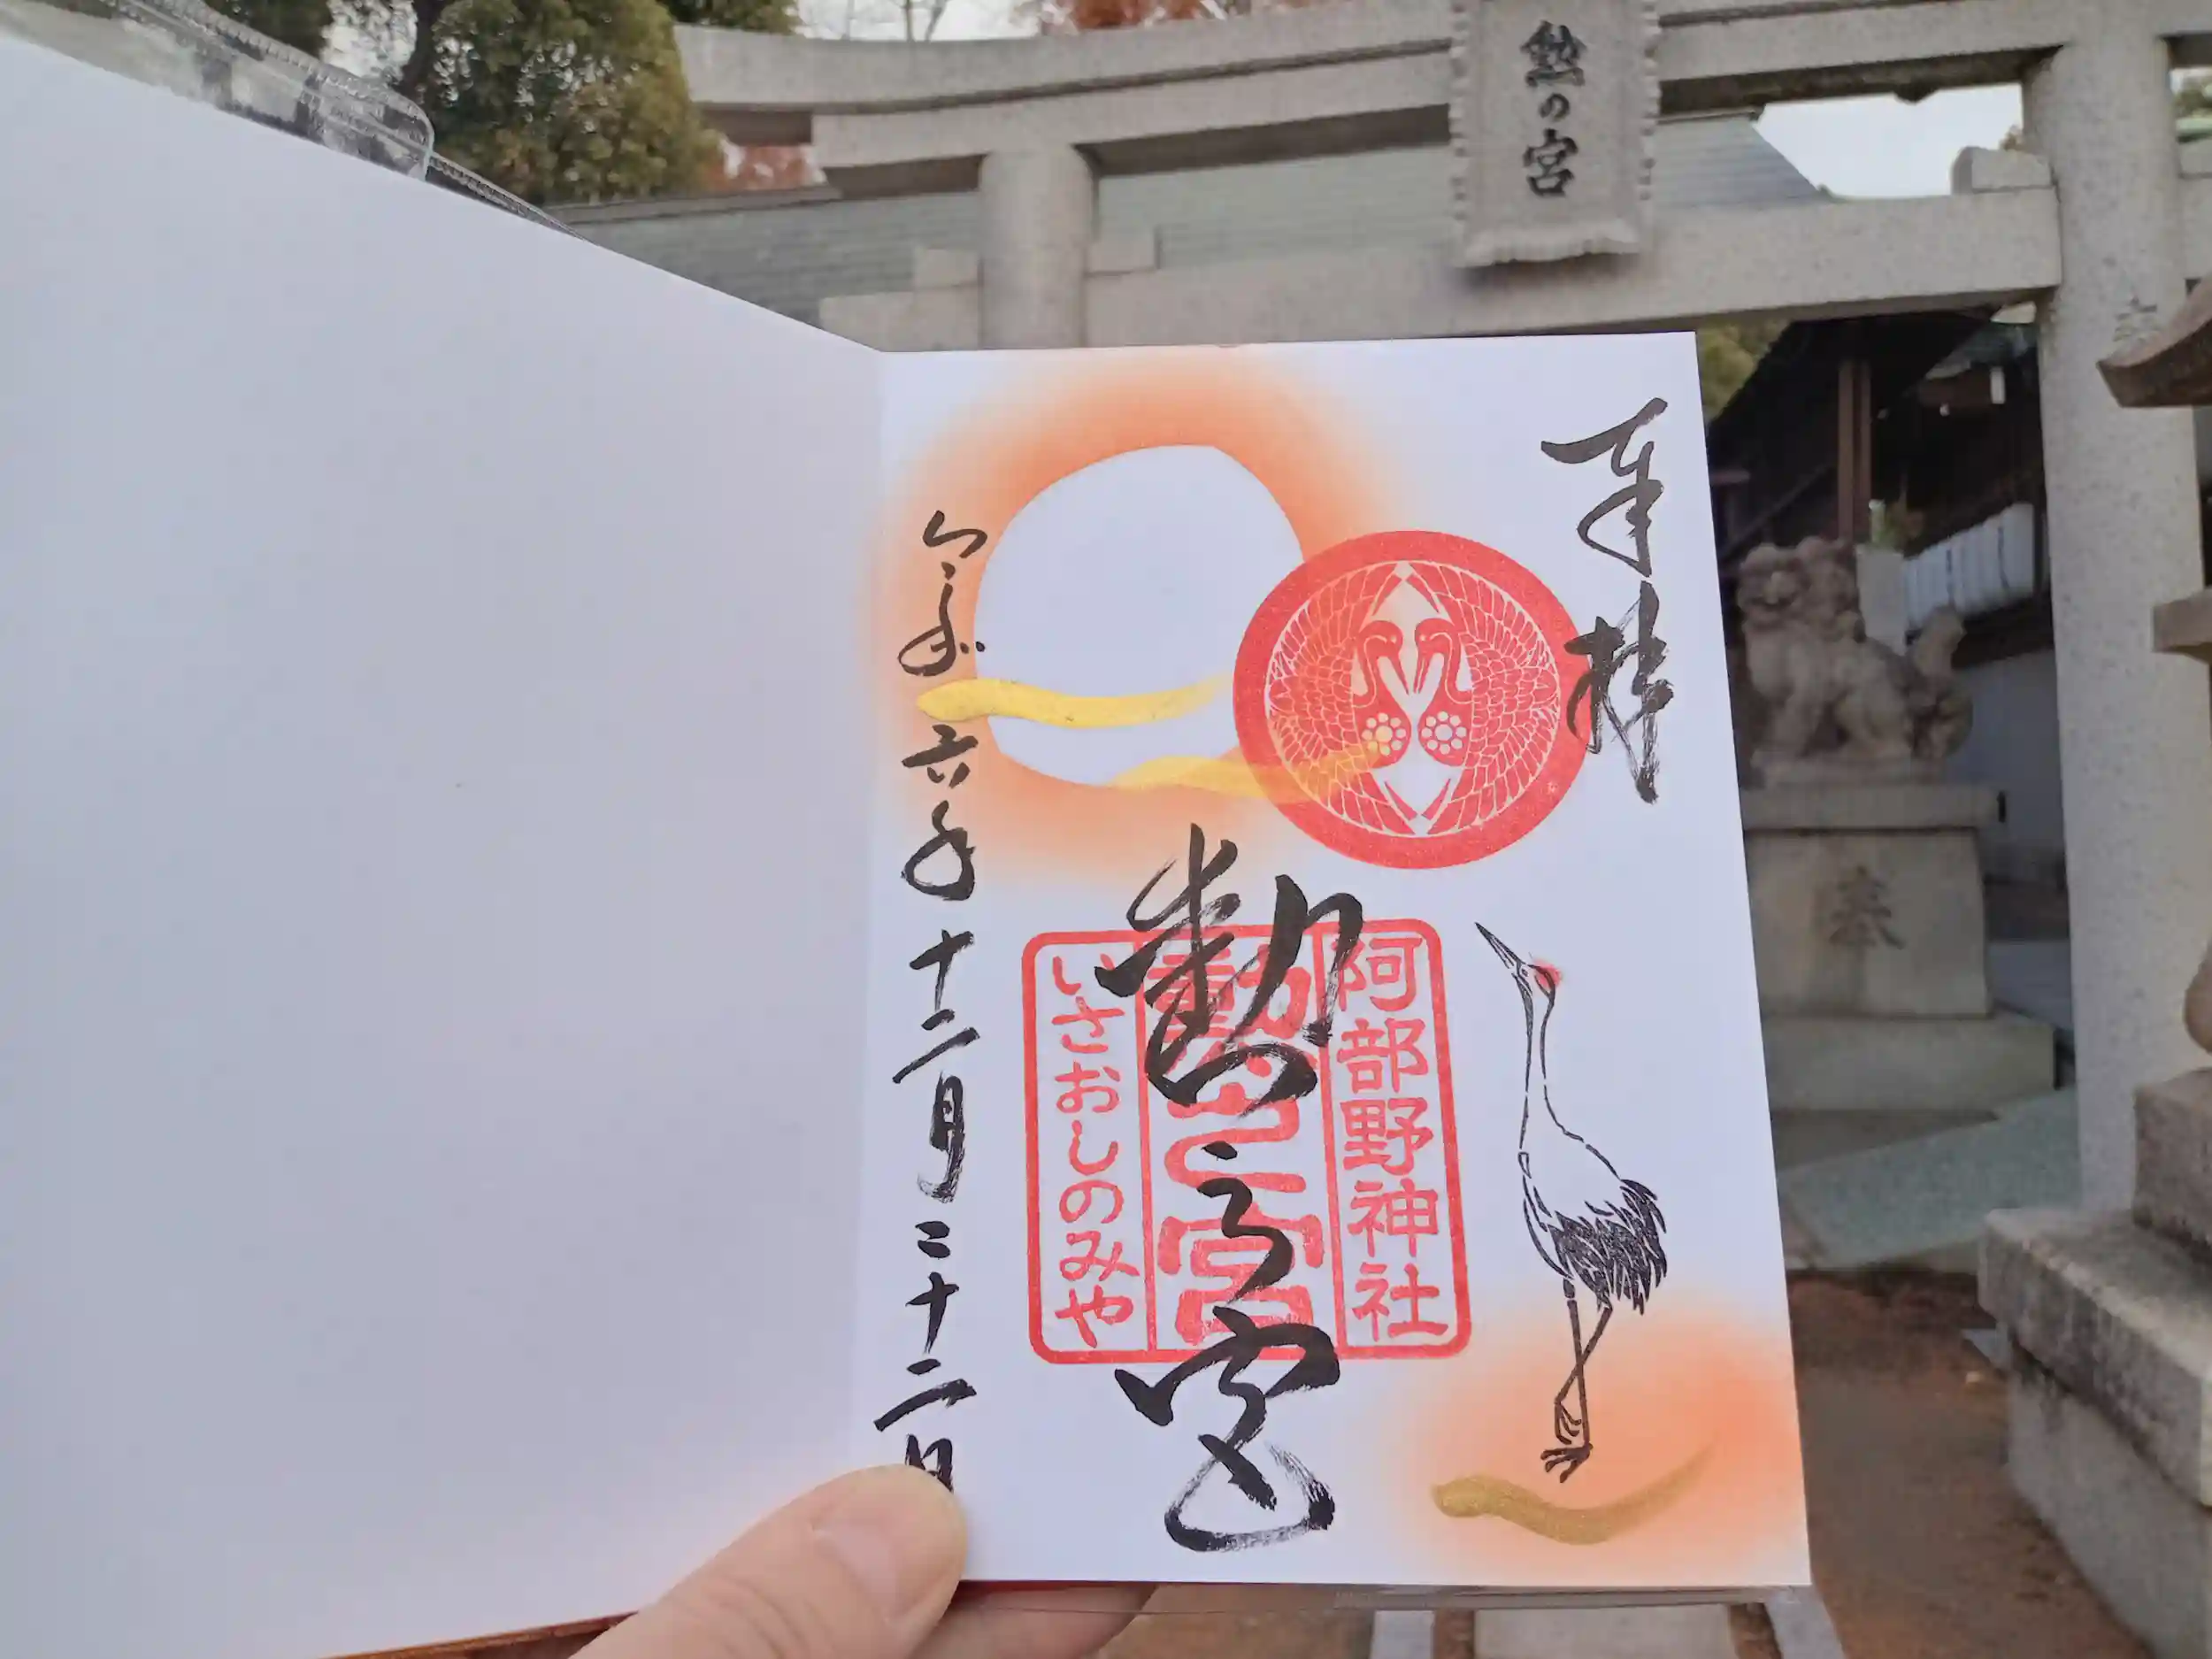 勲の宮
奉拝
阿部野神社
勲之宮
いさおしのみや
勲之宮
令和六年十二月二十二日
奉